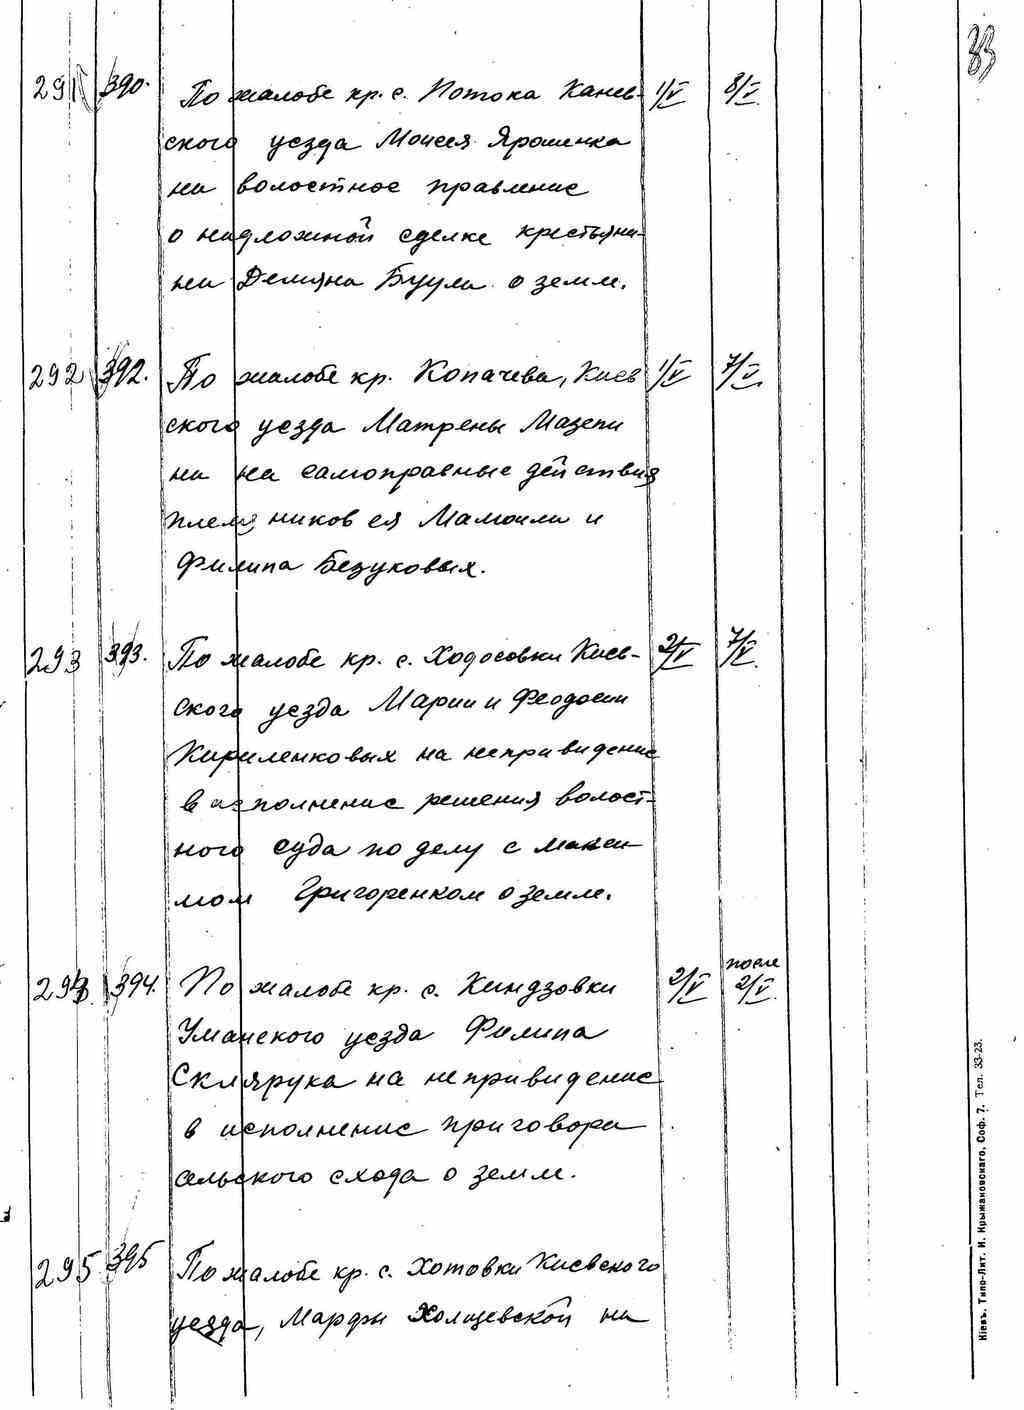 33
291 390. По жалобе кр. с. Потока Канев- 1/V 8/V
ского уезда Моисея Ярошенка
на волостное правление
о надложной сделке крестьяни-
на Демяна Буула о земле.
292 392. По жалобе кр. Копачева, Киев 1/V 7/V.
ского уезда Матрены Мазепи
на на самоправные действия
племяников ея Мамоила и
Филипа Безуковых.
293 393. По жалобе кр. с. Ходосовки Киев- 2/V 7/V.
ского уезда Марии и Феодосии
Кириленковых на непривидение
в исполнение решения волост-
ного суда по делу с Макси-
мом Григоренком о земле.
после
294. 394. По жалобе кр. с. Киндзовки 2/V 2/V.
Уманского уезда Филипа
Склярука на непривидение
в исполнение приговора
сельского схода о земле.
295 395 По жалобе кр. с. Хотовки Киевского
уезда, Марфы Холщевской на
Кіевъ. Типо-Лит. И. Крыжановскаго, Соф. 7. Тел. 33-23.